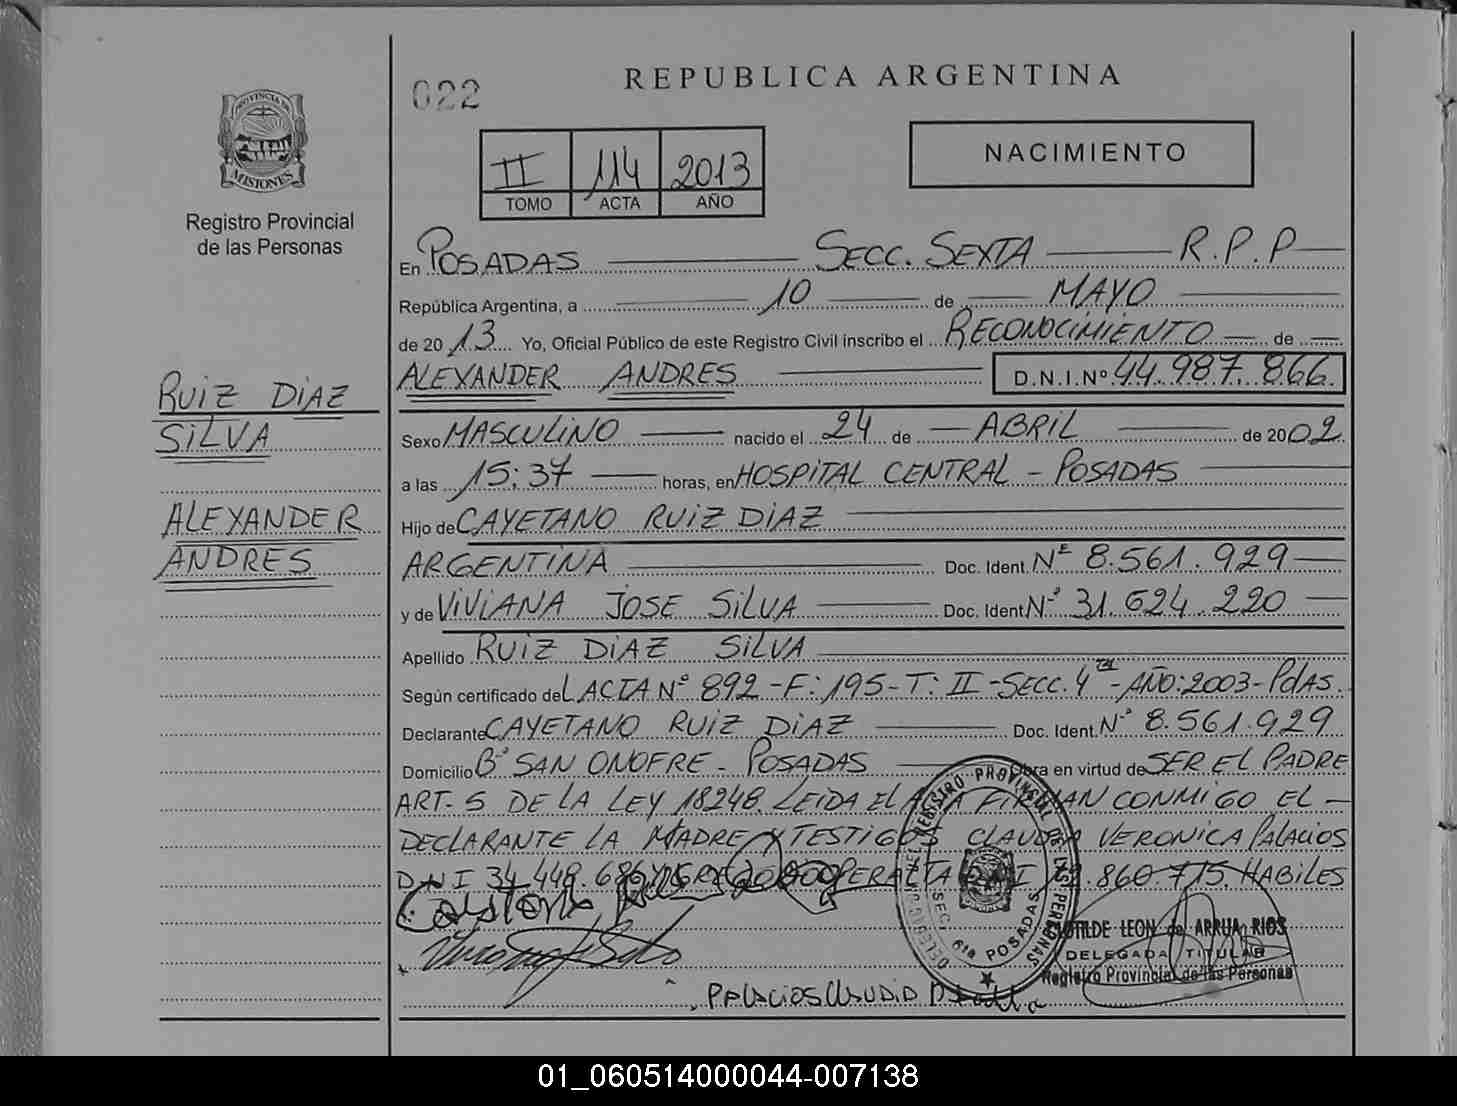 022
REPUBLICA ARGENTINA
PROVINCIA DE
MISIONES
Registro Provincial
de las Personas
II 114 2013
TOMO ACTA AÑO
NACIMIENTO
En POSADAS SECC. SEXTA R.P.P
República Argentina, a 10 de MAYO
de 2013 Yo, Oficial Público de este Registro Civil inscribo el RECONOCIMIENTO de
ALEXANDER ANDRES D.N.I.Nº 44.987.866
RUIZ DIAZ
SILVA
ALEXANDER
ANDRES
Sexo MASCULINO nacido el 24 de ABRIL de 2002
a las 15:37 horas, en HOSPITAL CENTRAL - POSADAS
Hijo de CAYETANO RUIZ DIAZ
ARGENTINA Doc. Ident. Nº 8.561.929
y de VIVIANA JOSE SILVA Doc. Ident Nº 31.624.220
Apellido RUIZ DIAZ SILVA
Según certificado del ACTA Nº 892-F:195-T:II-SECC.4ta-AÑO:2003-PdAS.
Declarante CAYETANO RUIZ DIAZ Doc. Ident. Nº 8.561.929
Domicilio Bº SAN ONOFRE - POSADAS Obra en virtud de SER EL PADRE
ART- 5 DE LA LEY 18248. LEIDA EL ACTA FIRMAN CONMIGO EL -
DECLARANTE LA MADRE Y TESTIGOS CLAUDIA VERONICA PALACIOS
D.N.I 34.448.686 PERALTA .860.775. HABILES
DELEGACION DEL REGISTRO PROVINCIAL DE LAS PERSONAS
SECC. 6ta POSADAS
CLOTILDE LEON de ARRUA RIOS
DELEGADA TITULAR
Registro Provincial de las Personas
PALACIOS CLAUDIA
01_060514000044-007138